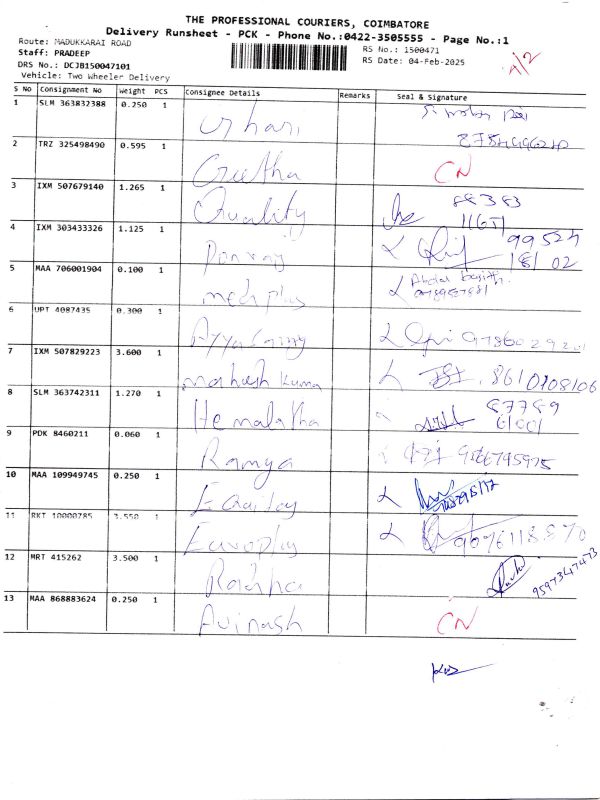 THE PROFESSIONAL COURIERS, COIMBATORE
Delivery Runsheet - PCK - Phone No.:0422-3505555 - Page No.:1
Route: MADUKKARAI ROAD
RS No.: 1500471
Staff: PRADEEP
RS Date: 04-Feb-2025
A/2
DRS No.: DCJB150047101
Vehicle: Two Wheeler Delivery
S No Consignment No Weight PCS Consignee Details Remarks Seal & Signature
1 SLM 363832388 0.250 1
2 TRZ 325498490 0.595 1 Geetha CN
3 IXM 507679140 1.265 1 Quality 88383
11651
4 IXM 303433326 1.125 1 Ponraj 99524
18102
5 MAA 706001904 0.100 1 medplus Abdul
6 UPT 4087435 0.300 1 9786029201
7 IXM 507829223 3.600 1 mahesh kuma 8610108106
8 SLM 363742311 1.270 1 Hemalatha 87789
61001
9 PDK 8460211 0.060 1 Ramya 9566795975
10 MAA 109949745 0.250 1
11 RKT 10000785 3.550 1 9096118870
12 MRT 415262 3.500 1 Radha 9597347473
13 MAA 868883624 0.250 1 Avinash CN